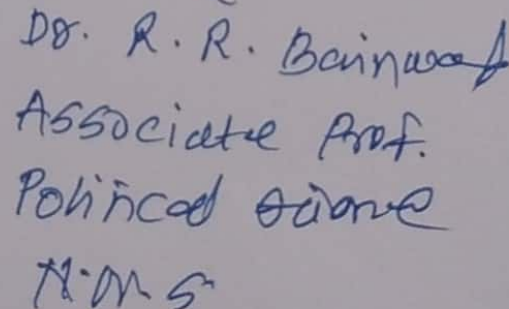 Dr. R. R. Bairwa
Associate Prof.
Political Science